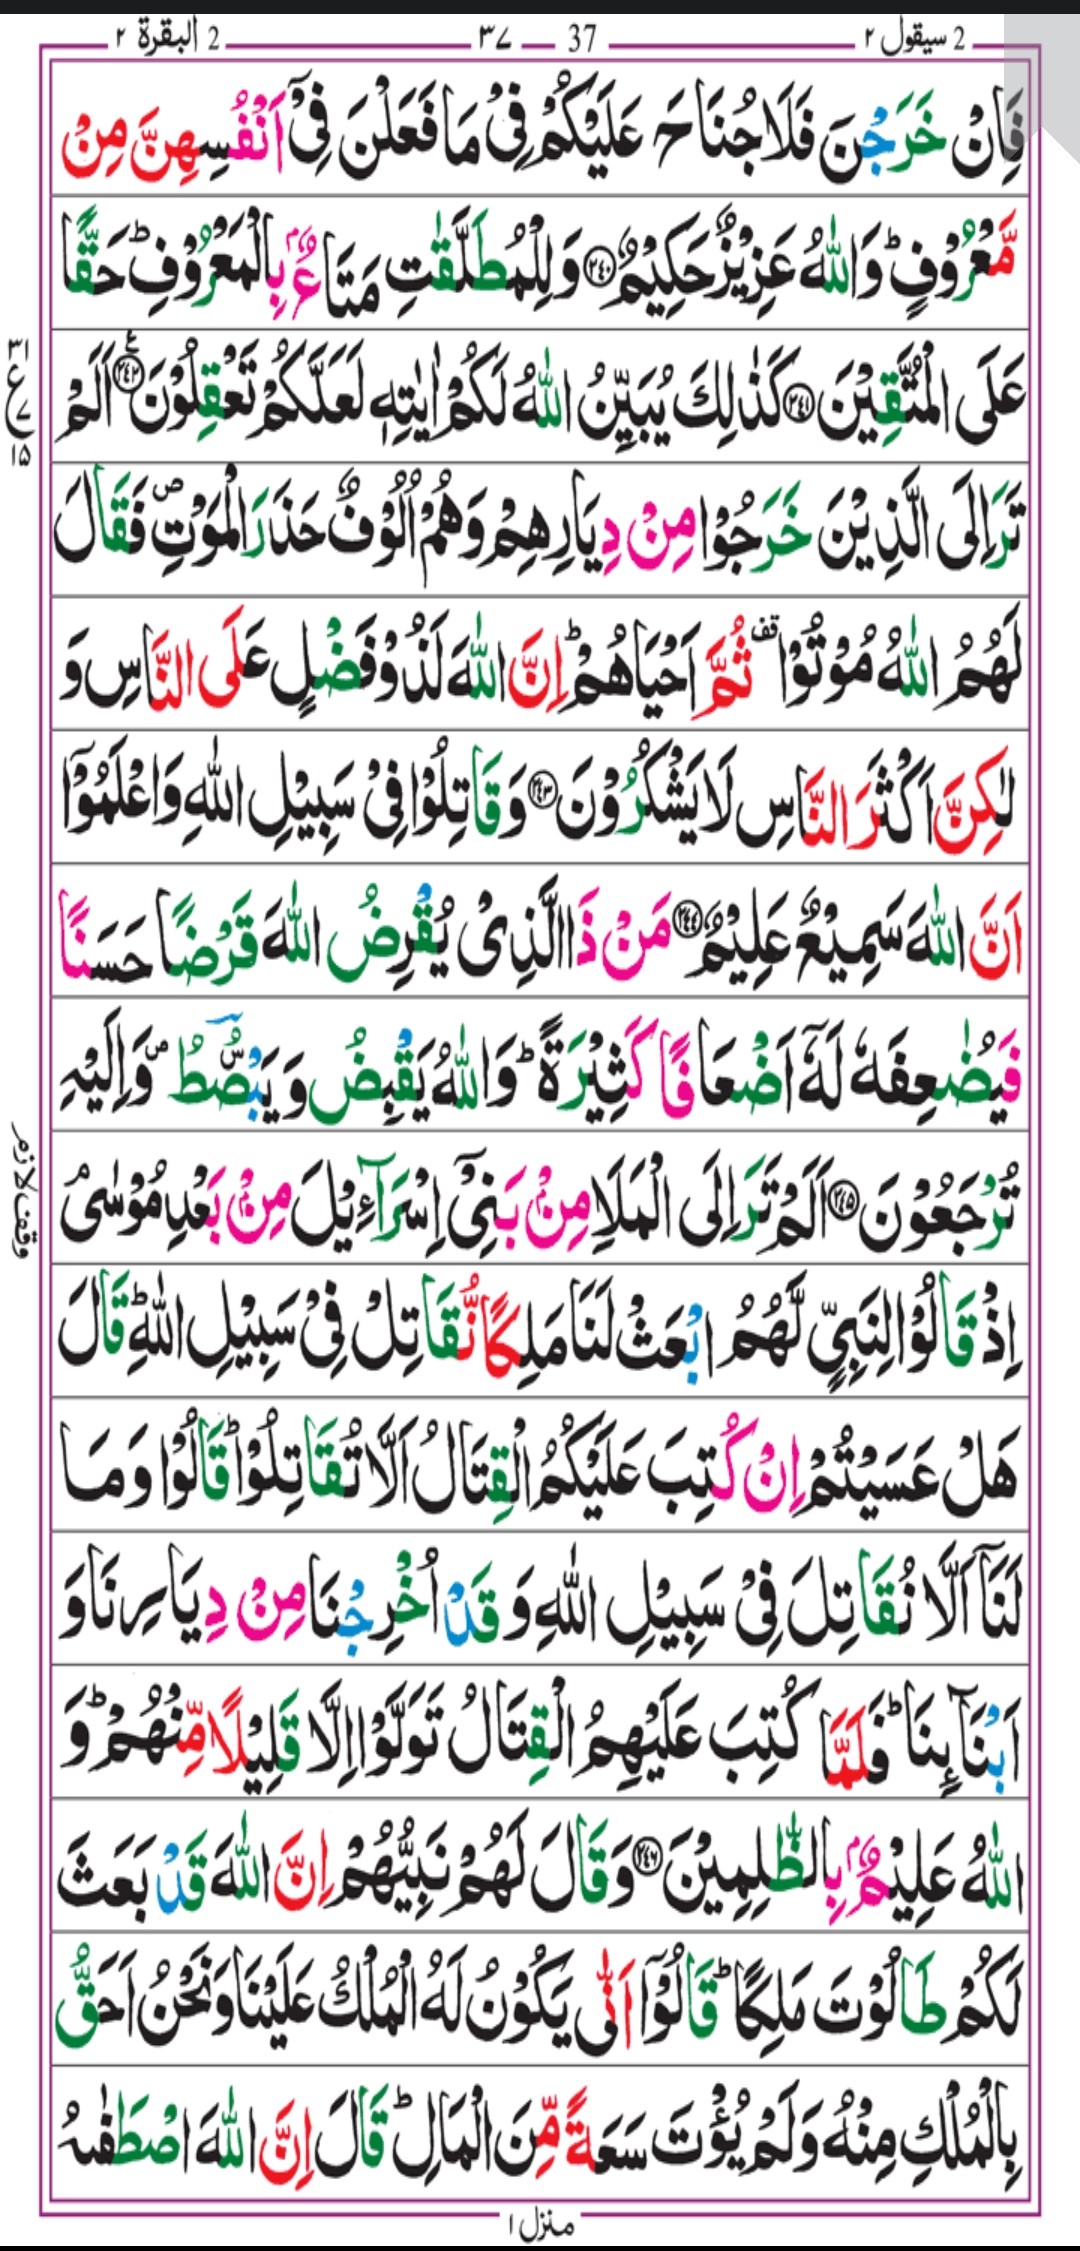 2 سیقول ٢ 37 ٣٧ 2 البقرة ٢
فَاِنْ خَرَجْنَ فَلَا جُنَاحَ عَلَيْكُمْ فِىْ مَا فَعَلْنَ فِىْٓ اَنْفُسِهِنَّ مِنْ
مَّعْرُوْفٍؕ وَاللّٰهُ عَزِيْزٌ حَكِيْمٌ ۝٢٤٠ وَلِلْمُطَلَّقٰتِ مَتَاعٌۢ بِالْمَعْرُوْفِؕ حَقًّا
عَلَى الْمُتَّقِيْنَ ۝٢٤١ كَذٰلِكَ يُبَيِّنُ اللّٰهُ لَكُمْ اٰيٰتِهٖ لَعَلَّكُمْ تَعْقِلُوْنَ ۝٢٤٢ اَلَمْ
٣١ ع ٧ ١٥
تَرَ اِلَى الَّذِيْنَ خَرَجُوْا مِنْ دِيَارِهِمْ وَهُمْ اُلُوْفٌ حَذَرَ الْمَوْتِ۪ فَقَالَ
لَهُمُ اللّٰهُ مُوْتُوْا قف ثُمَّ اَحْيَاهُمْؕ اِنَّ اللّٰهَ لَذُوْ فَضْلٍ عَلَى النَّاسِ وَ
لٰكِنَّ اَكْثَرَ النَّاسِ لَا يَشْكُرُوْنَ ۝٢٤٣ وَقَاتِلُوْا فِىْ سَبِيْلِ اللّٰهِ وَاعْلَمُوْٓا
اَنَّ اللّٰهَ سَمِيْعٌ عَلِيْمٌ ۝٢٤٤ مَنْ ذَا الَّذِىْ يُقْرِضُ اللّٰهَ قَرْضًا حَسَنًا
فَيُضٰعِفَهٗ لَهٗٓ اَضْعَافًا كَثِيْرَةًؕ وَاللّٰهُ يَقْبِضُ وَيَبْصُۜطُ۪ وَاِلَيْهِ
تُرْجَعُوْنَ ۝٢٤٥ اَلَمْ تَرَ اِلَى الْمَلَاِ مِنْۢ بَنِىْٓ اِسْرَآءِيْلَ مِنْۢ بَعْدِ مُوْسٰىۘ
وقف لازم
اِذْ قَالُوْا لِنَبِىٍّ لَّهُمُ ابْعَثْ لَنَا مَلِكًا نُّقَاتِلْ فِىْ سَبِيْلِ اللّٰهِؕ قَالَ
هَلْ عَسَيْتُمْ اِنْ كُتِبَ عَلَيْكُمُ الْقِتَالُ اَلَّا تُقَاتِلُوْاؕ قَالُوْا وَمَا
لَنَآ اَلَّا نُقَاتِلَ فِىْ سَبِيْلِ اللّٰهِ وَقَدْ اُخْرِجْنَا مِنْ دِيَارِنَا وَ
اَبْنَآئِنَاؕ فَلَمَّا كُتِبَ عَلَيْهِمُ الْقِتَالُ تَوَلَّوْا اِلَّا قَلِيْلًا مِّنْهُمْؕ وَ
اللّٰهُ عَلِيْمٌۢ بِالظّٰلِمِيْنَ ۝٢٤٦ وَقَالَ لَهُمْ نَبِيُّهُمْ اِنَّ اللّٰهَ قَدْ بَعَثَ
لَكُمْ طَالُوْتَ مَلِكًاؕ قَالُوْٓا اَنّٰى يَكُوْنُ لَهُ الْمُلْكُ عَلَيْنَا وَنَحْنُ اَحَقُّ
بِالْمُلْكِ مِنْهُ وَلَمْ يُؤْتَ سَعَةً مِّنَ الْمَالِؕ قَالَ اِنَّ اللّٰهَ اصْطَفٰىهُ
منزل ١